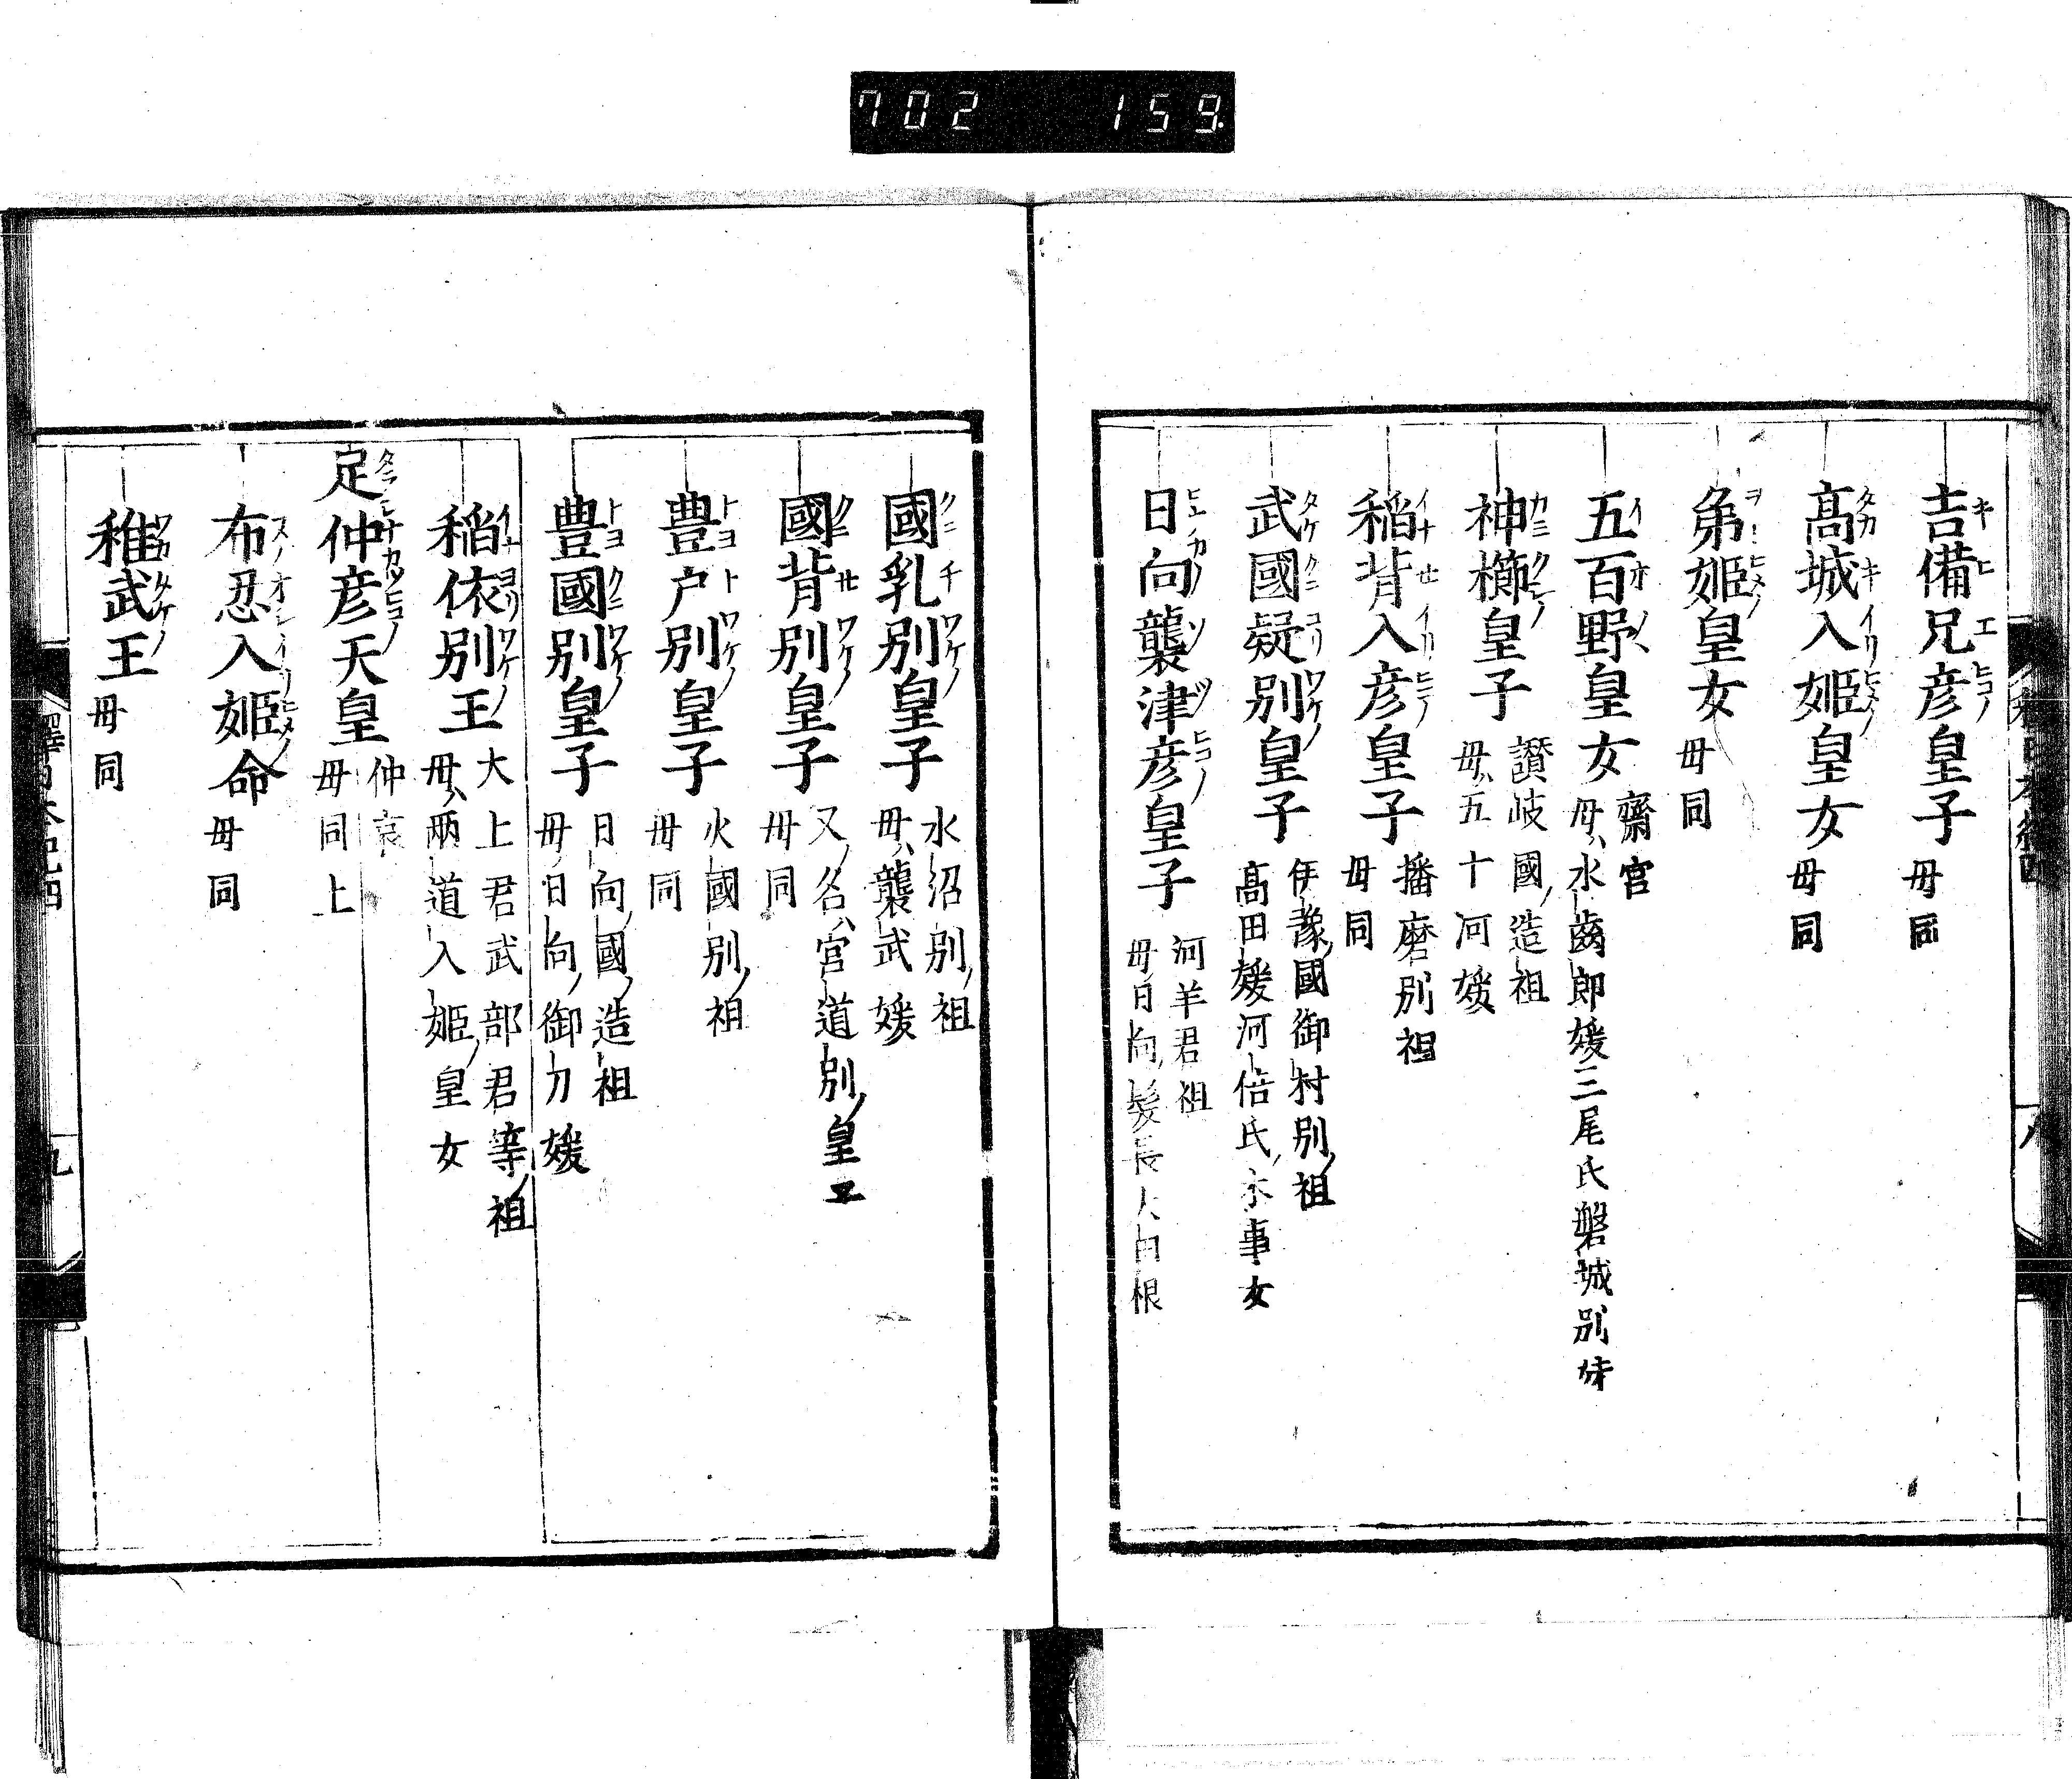 702 159
吉備兄彦皇子 毋同
高城入姫皇女 毋同
弟姫皇女 毋同
五百野皇女 齋宮
毋ハ水齒郎媛三尾氏磐城別妹
神櫛皇子 讃岐國ノ造祖
毋ハ五十河媛
稲背入彦皇子 播磨別祖
毋同
武國凝別皇子 伊豫國御村別ノ祖
高田媛河倍氏ノ木事女
日向襲津彦皇子 河羊君祖
毋日向髮長大田根
國乳別皇子 水沼別ノ祖
毋ハ襲武媛
國背別皇子 又ノ名ハ宮道別ノ皇子
毋同
豊戸別皇子 火國別ノ祖
毋同
豊國別皇子 日向ノ國ノ造祖
毋日向ノ御刀媛
稲依別王 大上君武部君等ノ祖
毋ハ兩道入姫ノ皇女
足仲彦天皇 仲哀
毋同上
布忍入姫命 毋同
稚武王 毋同
釋日本紀四
九
八